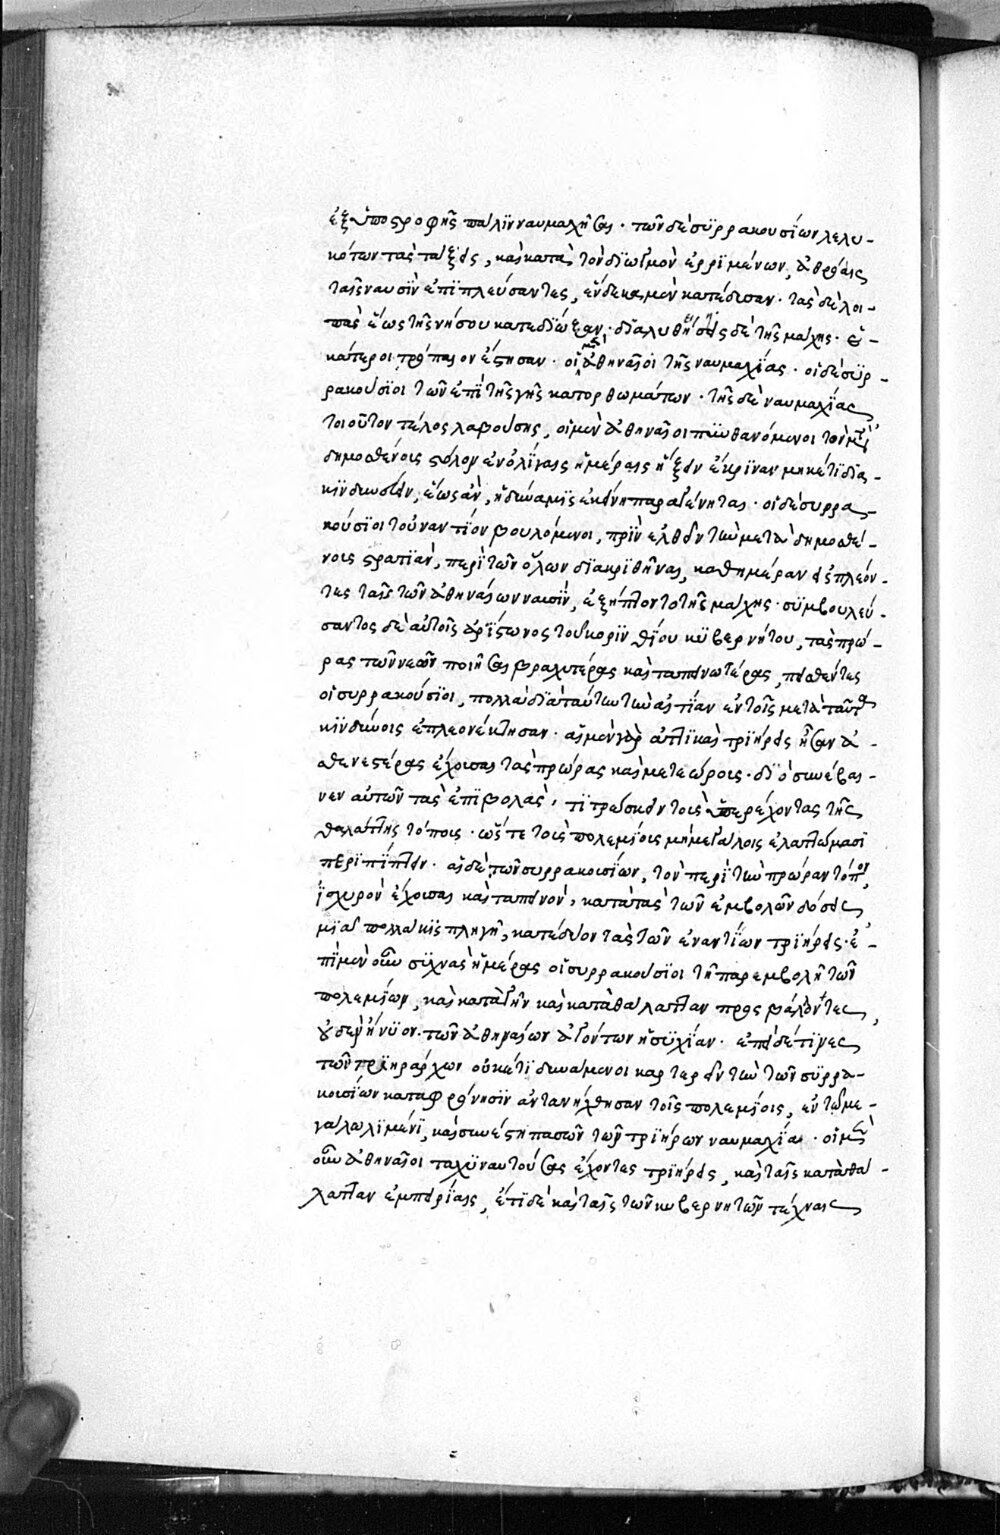 ἐξ ὑποστροφῆς πάλιν ναυμαχῆσαι· τῶν δὲ συρρακουσίων λελυ-
κότων τὰς τάξεις, καὶ κατὰ τὸν διωγμὸν ἐρριμένων, ἀθρόαις
ταῖς ναυσὶν ἐπιπλεύσαντες, ἕνδεκα μὲν κατέδυσαν· τὰς δὲ λοι-
πὰς ἕως τῆς νήσου κατεδίωξαν· διαλυθείσης δὲ τῆς μάχης· ἑ-
κάτεροι τρόπαιον ἔστησαν· οἱ μὲν ἀθηναῖοι τῆς ναυμαχίας· οἱ δὲ συρ-
ρακούσιοι τῶν ἐπὶ τῆς γῆς κατορθωμάτων· τῆς δὲ ναυμαχίας
τοιοῦτον τέλος λαβούσης, οἱ μὲν ἀθηναῖοι πυνθανόμενοι τὸν μετὰ
δημοσθένους στόλον ἐν ὀλίγαις ἡμέραις ἥξειν ἔκριναν μηκέτι δια-
κινδυνεύειν, ἕως ἂν ἡ δύναμις ἐκείνη παραγένηται· οἱ δὲ συρρα-
κούσιοι τοὐναντίον βουλόμενοι, πρὶν ἐλθεῖν τὴν μετὰ δημοσθέ-
νους στρατιὰν, περὶ τῶν ὅλων διακριθῆναι, καθημέραν ἐπιπλέον-
τες ταῖς τῶν ἀθηναίων ναυσὶν, ἐξήπτοντο τῆς μάχης· συμβουλεύ-
σαντος δὲ αὐτοῖς ἀρίστωνος τοῦ κορινθίου κυβερνήτου, τὰς πρώ-
ρας τῶν νεῶν ποιῆσαι βραχυτέρας καὶ ταπεινωτέρας, πεισθέντες
οἱ συρρακούσιοι, πολλὰ διὰ ταύτην τὴν αἰτίαν ἐν τοῖς μετὰ ταῦτα
κινδύνοις ἐπλεονέκτησαν· αἱ μὲν γὰρ ἀττικαὶ τριήρεις ἦσαν ἀ-
σθενεστέρας ἔχουσαι τὰς πρώρας καὶ μετεώρους· διὸ συνέβαι-
νεν αὐτῶν τὰς ἐπιβολὰς, τιτρώσκειν τοὺς ὑπερέχοντας τῆς
θαλάττης τόπους· ὥστε τοὺς πολεμίους μὴ μεγάλοις ἐλαττώμασι
περιπίπτειν· αἱ δὲ τῶν συρρακουσίων, τὸν περὶ τὴν πρώραν τόπον,
ἰσχυρὸν ἔχουσαι καὶ ταπεινὸν, κατὰ τὰς τῶν ἐμβολῶν δόσεις
μιᾷ πολλάκις πληγῇ, κατέδυον τὰς τῶν ἐναντίων τριήρεις· ἐ-
πὶ μὲν οὖν συχνὰς ἡμέρας οἱ συρρακούσιοι τῇ παρεμβολῇ τῶν
πολεμίων, καὶ κατὰ γῆν καὶ κατὰ θάλατταν προσβάλοντες,
οὐδὲν ἤνυον· τῶν ἀθηναίων ἀγόντων ἡσυχίαν· ἐπεὶ δέ τινες
τῶν τριηράρχων οὐκέτι δυνάμενοι καρτερεῖν τὴν τῶν συρρα-
κουσίων καταφρόνησιν ἀντανήχθησαν τοῖς πολεμίοις, ἐν τῷ με-
γάλῳ λιμένι, καὶ συνέστη πασῶν τῶν τριήρων ναυμαχία· οἱ μὲν
οὖν ἀθηναῖοι ταχυναυτούσας ἔχοντες τριήρεις, καὶ ταῖς κατὰ θά-
λατταν ἐμπειρίαις, ἔτι δὲ καὶ ταῖς τῶν κυβερνητῶν τέχναις